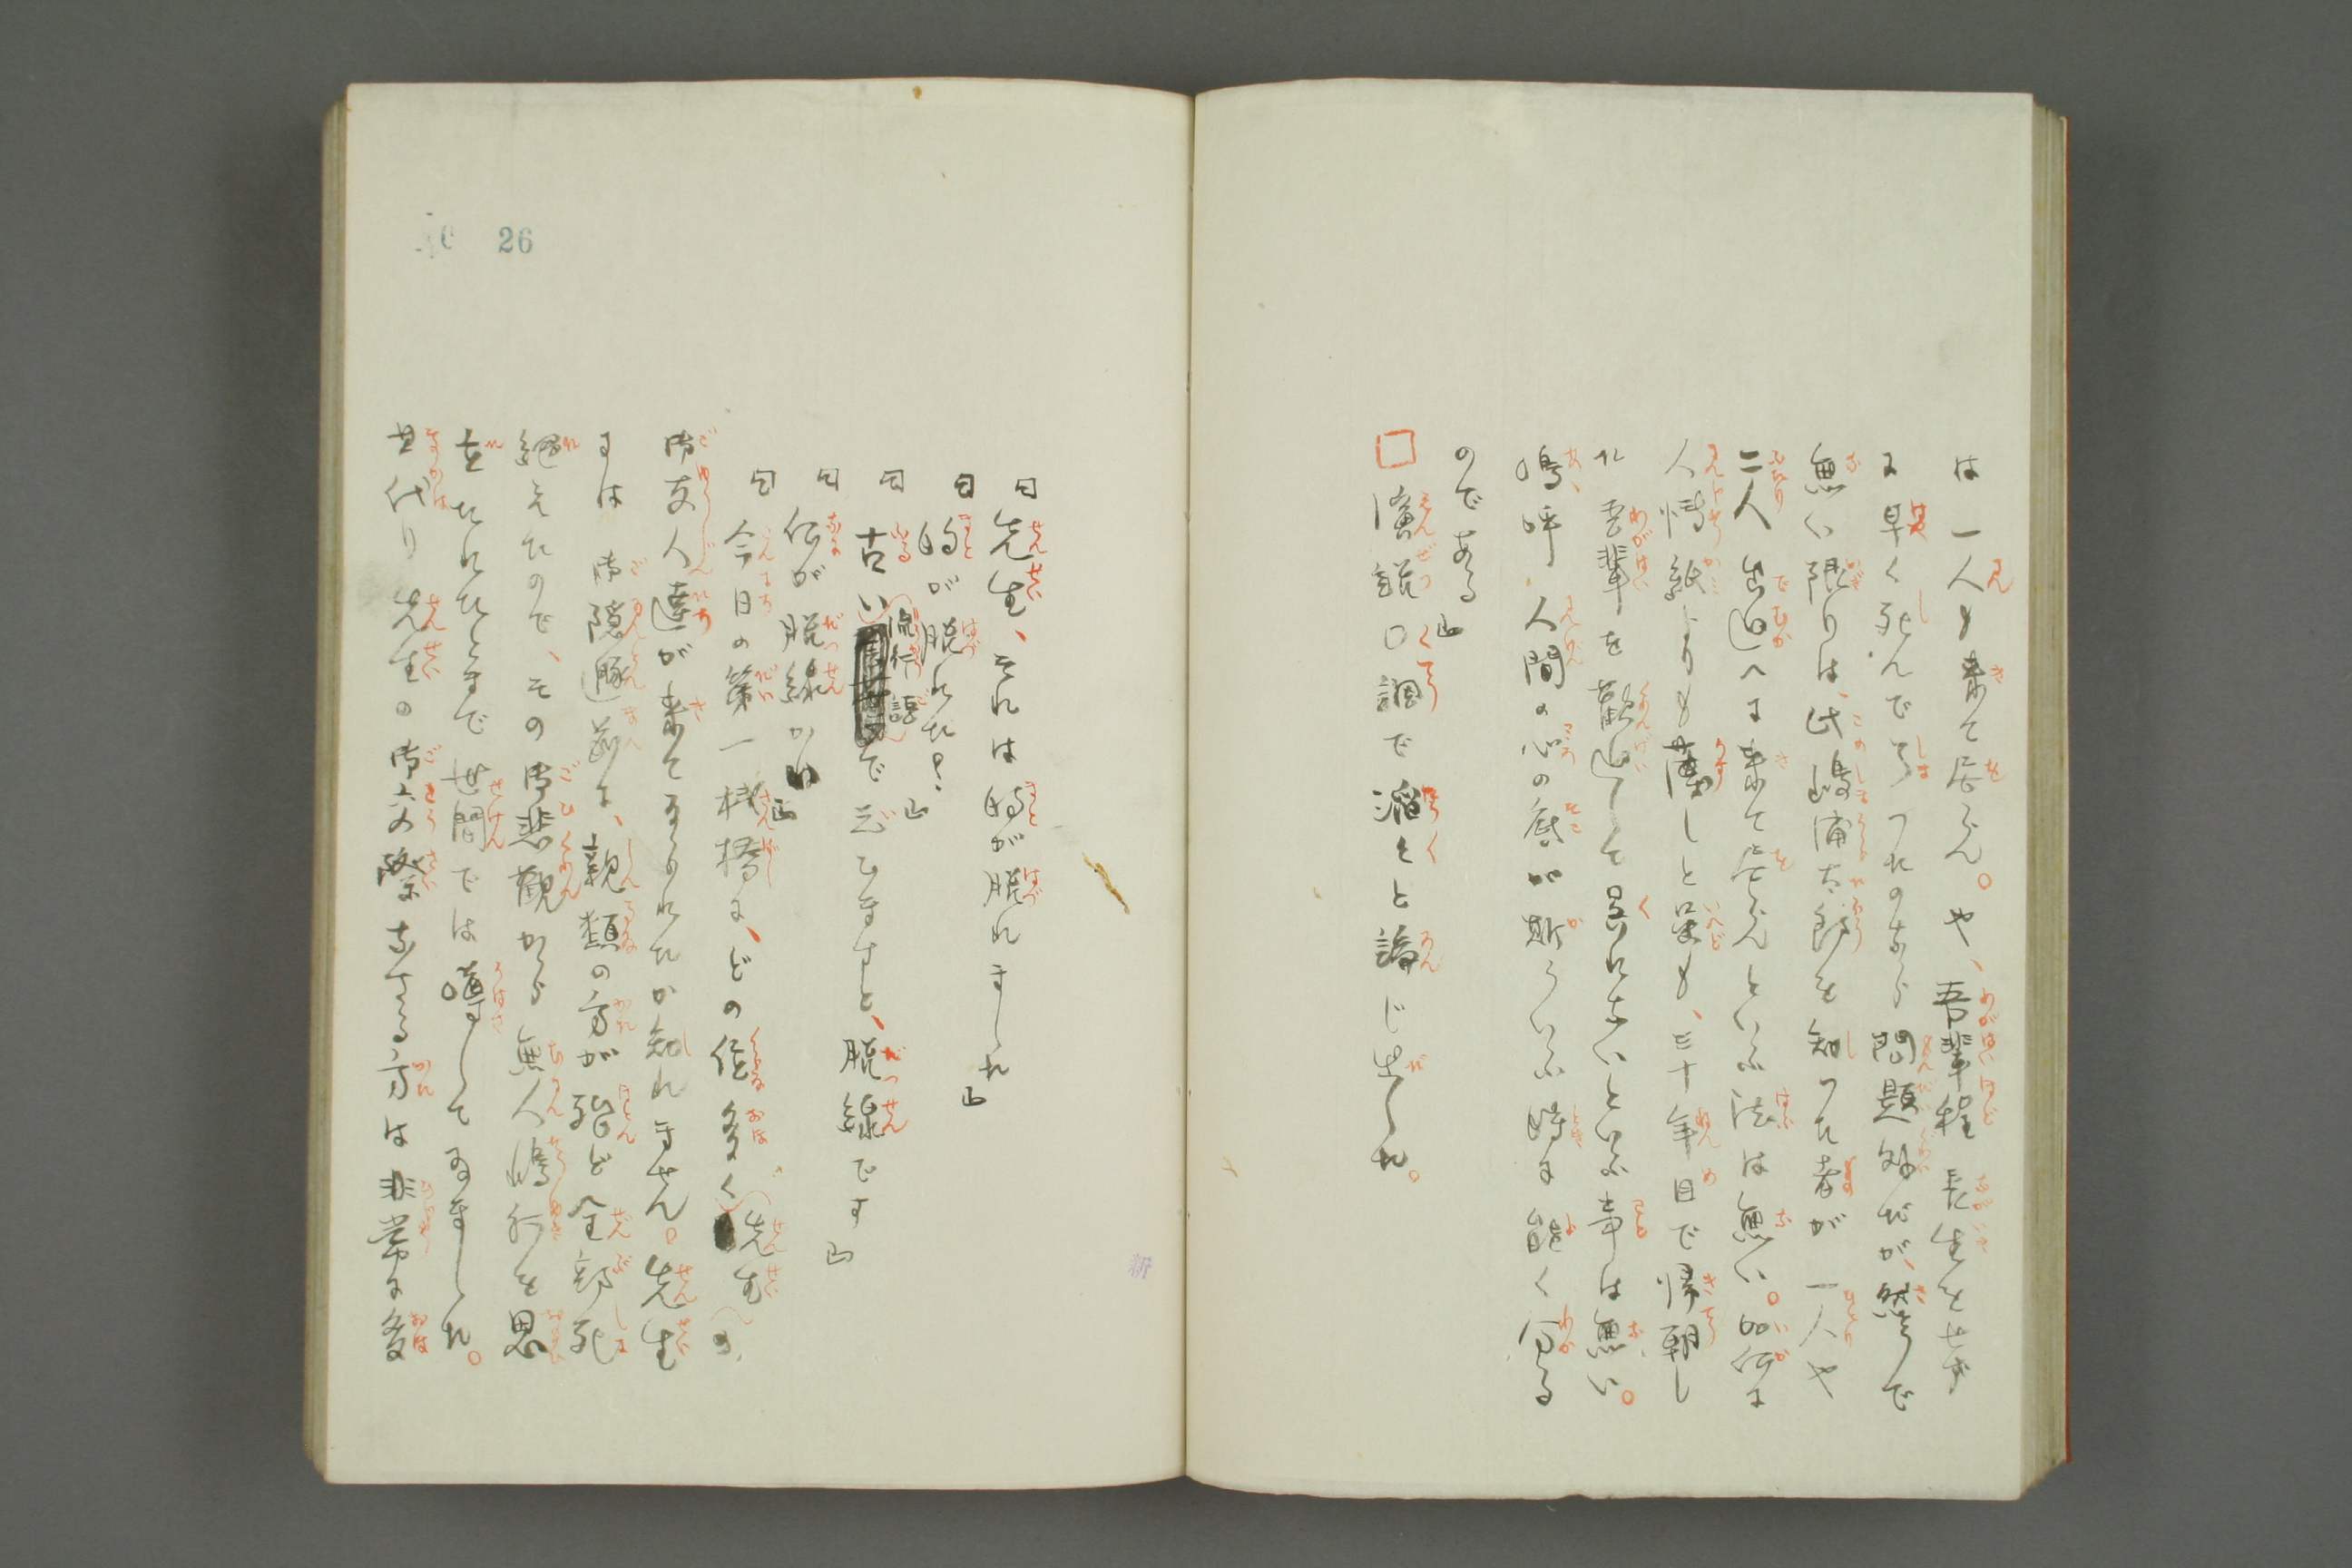 は一人も来て居らん。や、吾輩程長生をせず
に早く死んでしまつたのなら問題外だが、然うで
無い限りは、此嶋浦太郎を知つた者が一人や
二人出迎へに来て居らんといふ法は無い。如何に
人情紙よりも薄しと雖も、三十年目で帰朝し
た吾輩を歓迎して呉れないといふ事は無い。
嗚呼、人間の心の底は斯ういふ時に能く分る
のである」
□演説口調で滔々と論じ出した。
「先生、それは的が脱れました」
「的が脱れた？」
「古い流行語で云ひますと、脱線です」
「何が脱線かね」
「今日の第一桟橋に、どの位多く先生の
御友人達が来てゐられたか知れません。先生
には御隠遯前に、親類の方が殆ど全部死
絶えたので、その御悲観から無人嶋行を思
立たれたとまで世間では噂してゐました。
其代り先生の御交際なさる方は非常に多
26
新